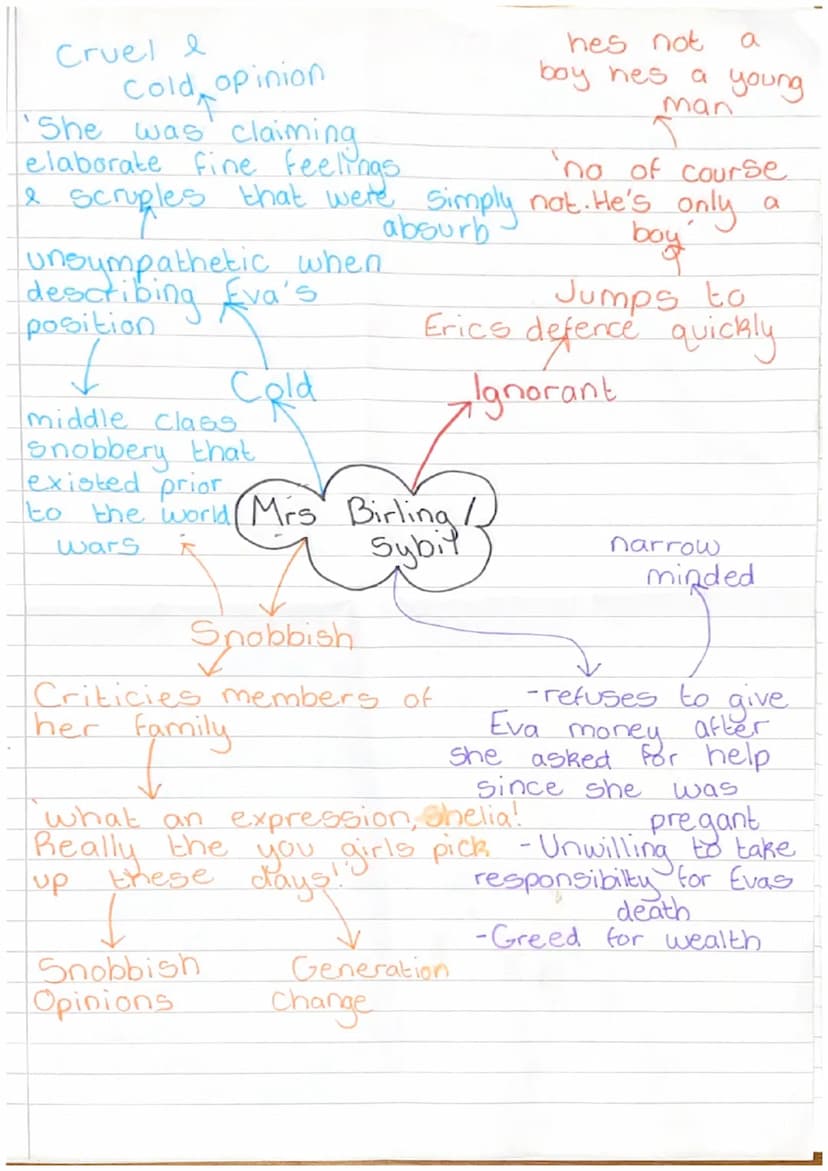 Cruel &
Cold opinion
'She was claiming
elaborate fine feelings
& scruples that were simply
absurb
unsympathetic when
describing Eva's
position
Cold
middle class
snobbery that
existed prior
to the world
wars
hes not a
boy hes a young
man
'no of course
not. He's only a
boy'
Jumps to
Erics defence quickly
Ignorant
Mrs Birling /
Sybil
Snobbish
Criticies members of
her family
'what an expression, Shelia!
Really the you girls pick
up these days!'
Snobbish
Opinions
Generation
Change
narrow
minded
-refuses to give
Eva money after
she asked for help
since she was
pregant
-Unwilling to take
responsibilty for Evas
death
-Greed for wealth